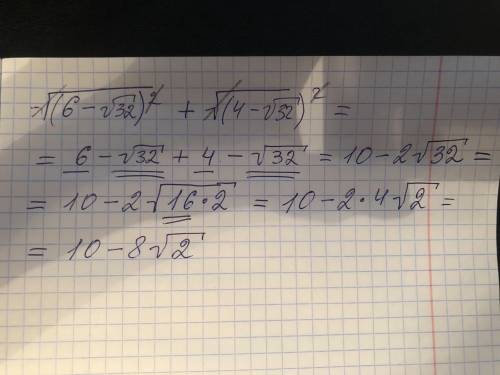 √(6-√32)² + √(4-√32)² =
= 6 - √32 + 4 - √32 = 10 - 2√32 =
= 10 - 2√16·2 = 10 - 2·4√2 =
= 10 - 8√2